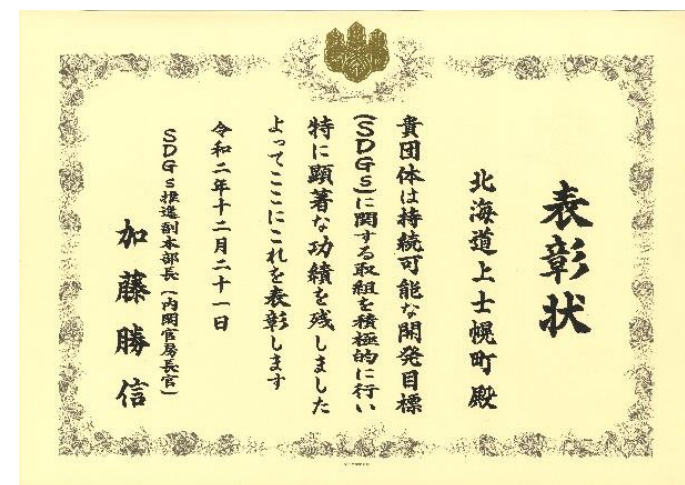 表彰状
北海道上士幌町殿
貴団体は持続可能な開発目標
(SDGs)に関する取組を積極的に行い
特に顕著な功績を残しました
よってここにこれを表彰します
令和二年十二月二十一日
SDGs推進副本部長(内閣官房長官)
加藤勝信